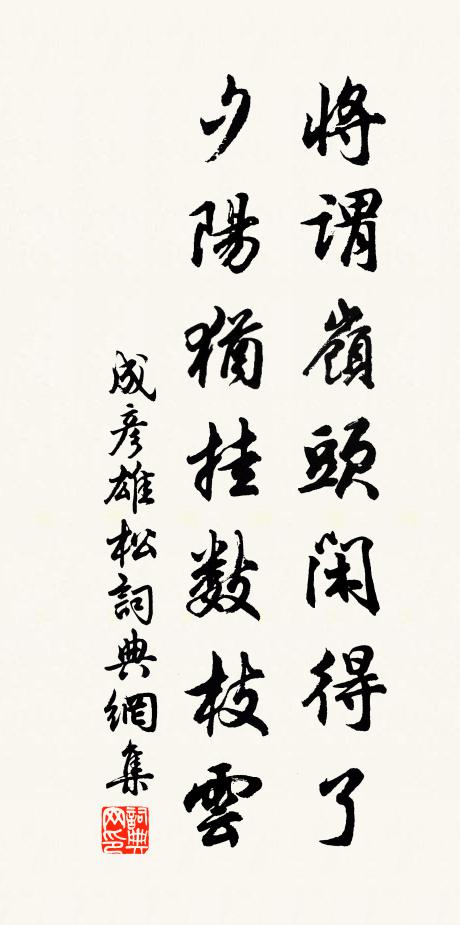 將謂嶺頭閑得了
夕陽猶挂數枝雲
成彥雄松詞典網集
詞典網印